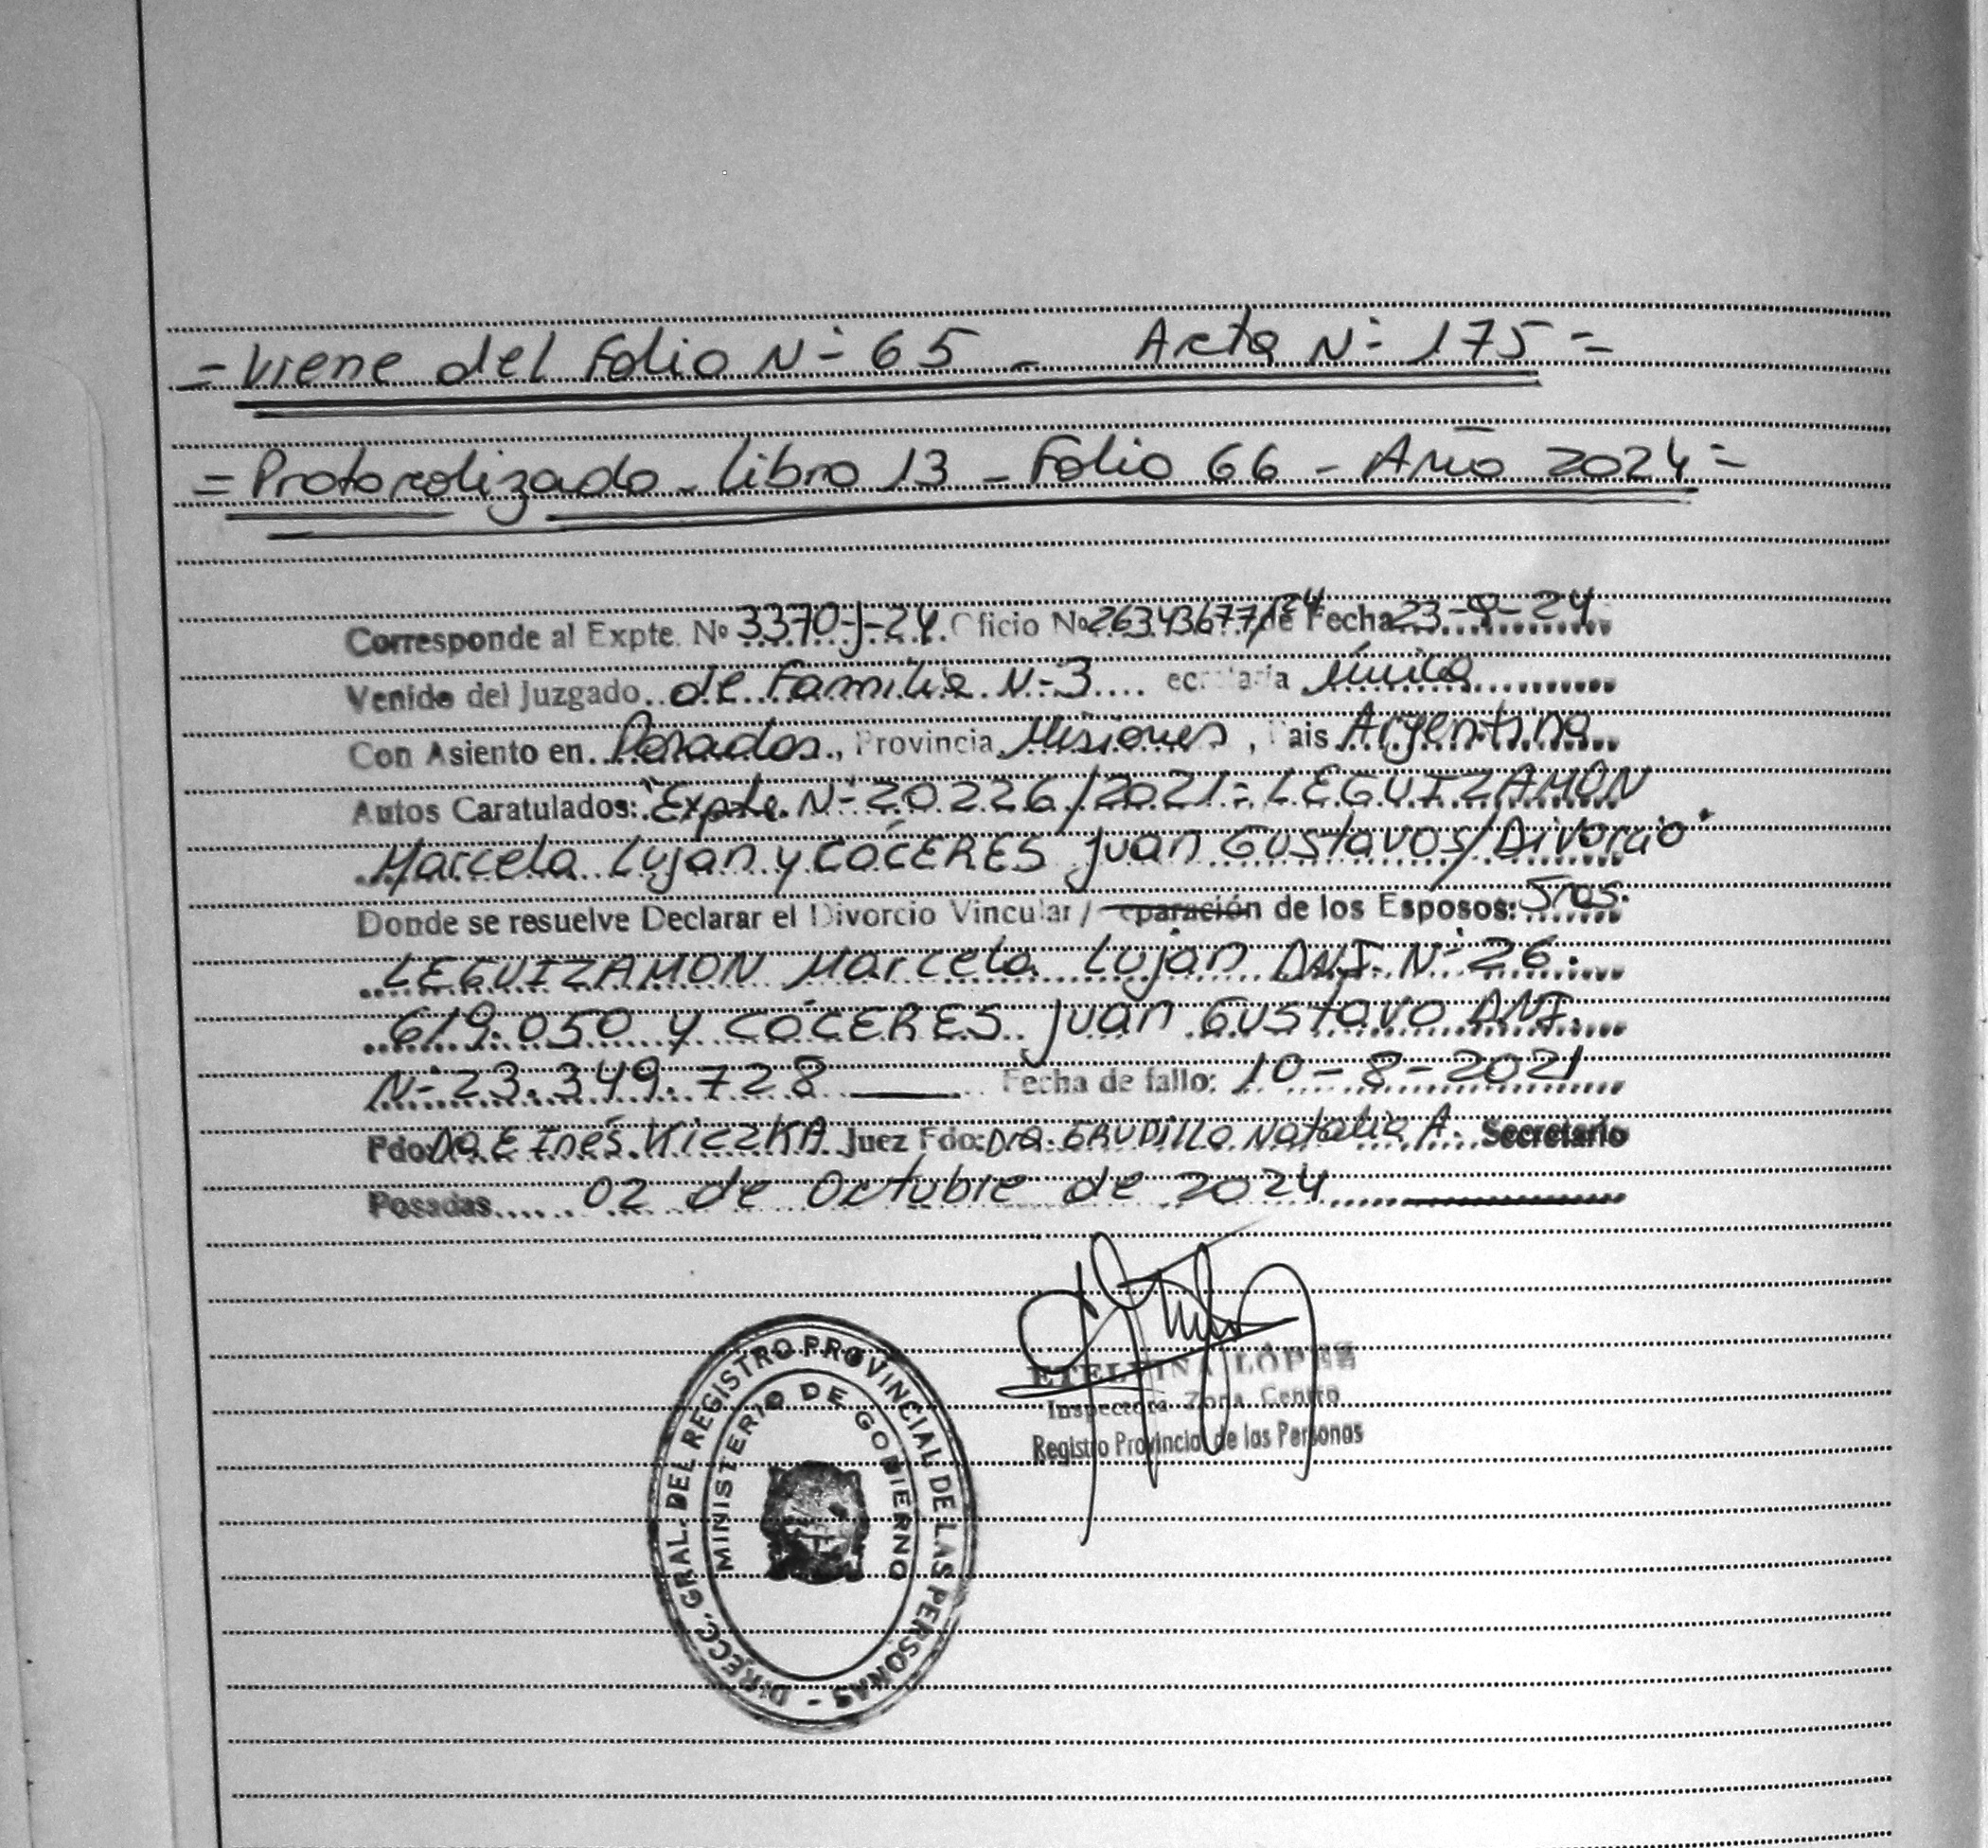 = Viene del Folio N- 65 - Acta N- 175 =
= Protocolizado - Libro 13 - Folio 66 - Año 2024 =
Corresponde al Expte. Nº 3370-J-24. Oficio Nº 26343677/24 de Fecha 23-9-24
Venido del Juzgado de Familia N-3 ecretaria única
Con Asiento en Posadas, Provincia Misiones, Pais Argentina
Autos Caratulados: "Expte. N- 20.226/2021 = LEGUIZAMÓN
Marcela Luján y CÓCERES Juan Gustavo S/Divorcio"
Donde se resuelve Declarar el Divorcio Vincular / eparación de los Esposos: Sres.
LEGUIZAMON Marcela Luján DNI. N- 26.
619.050 y CÓCERES Juan Gustavo DNI.
N- 23.349.728 Fecha de fallo: 10-8-2021
Fdo: Inés KICZKA Juez Fdo: Dra. Natalia A. Secretario
Posadas 02 de Octubre de 2024
ETELVINA LÓPEZ
Inspectora Zona Centro
Registro Provincial de las Personas
DIRECC. GRAL. DEL REGISTRO PROVINCIAL DE LAS PERSONAS -
MINISTERIO DE GOBIERNO